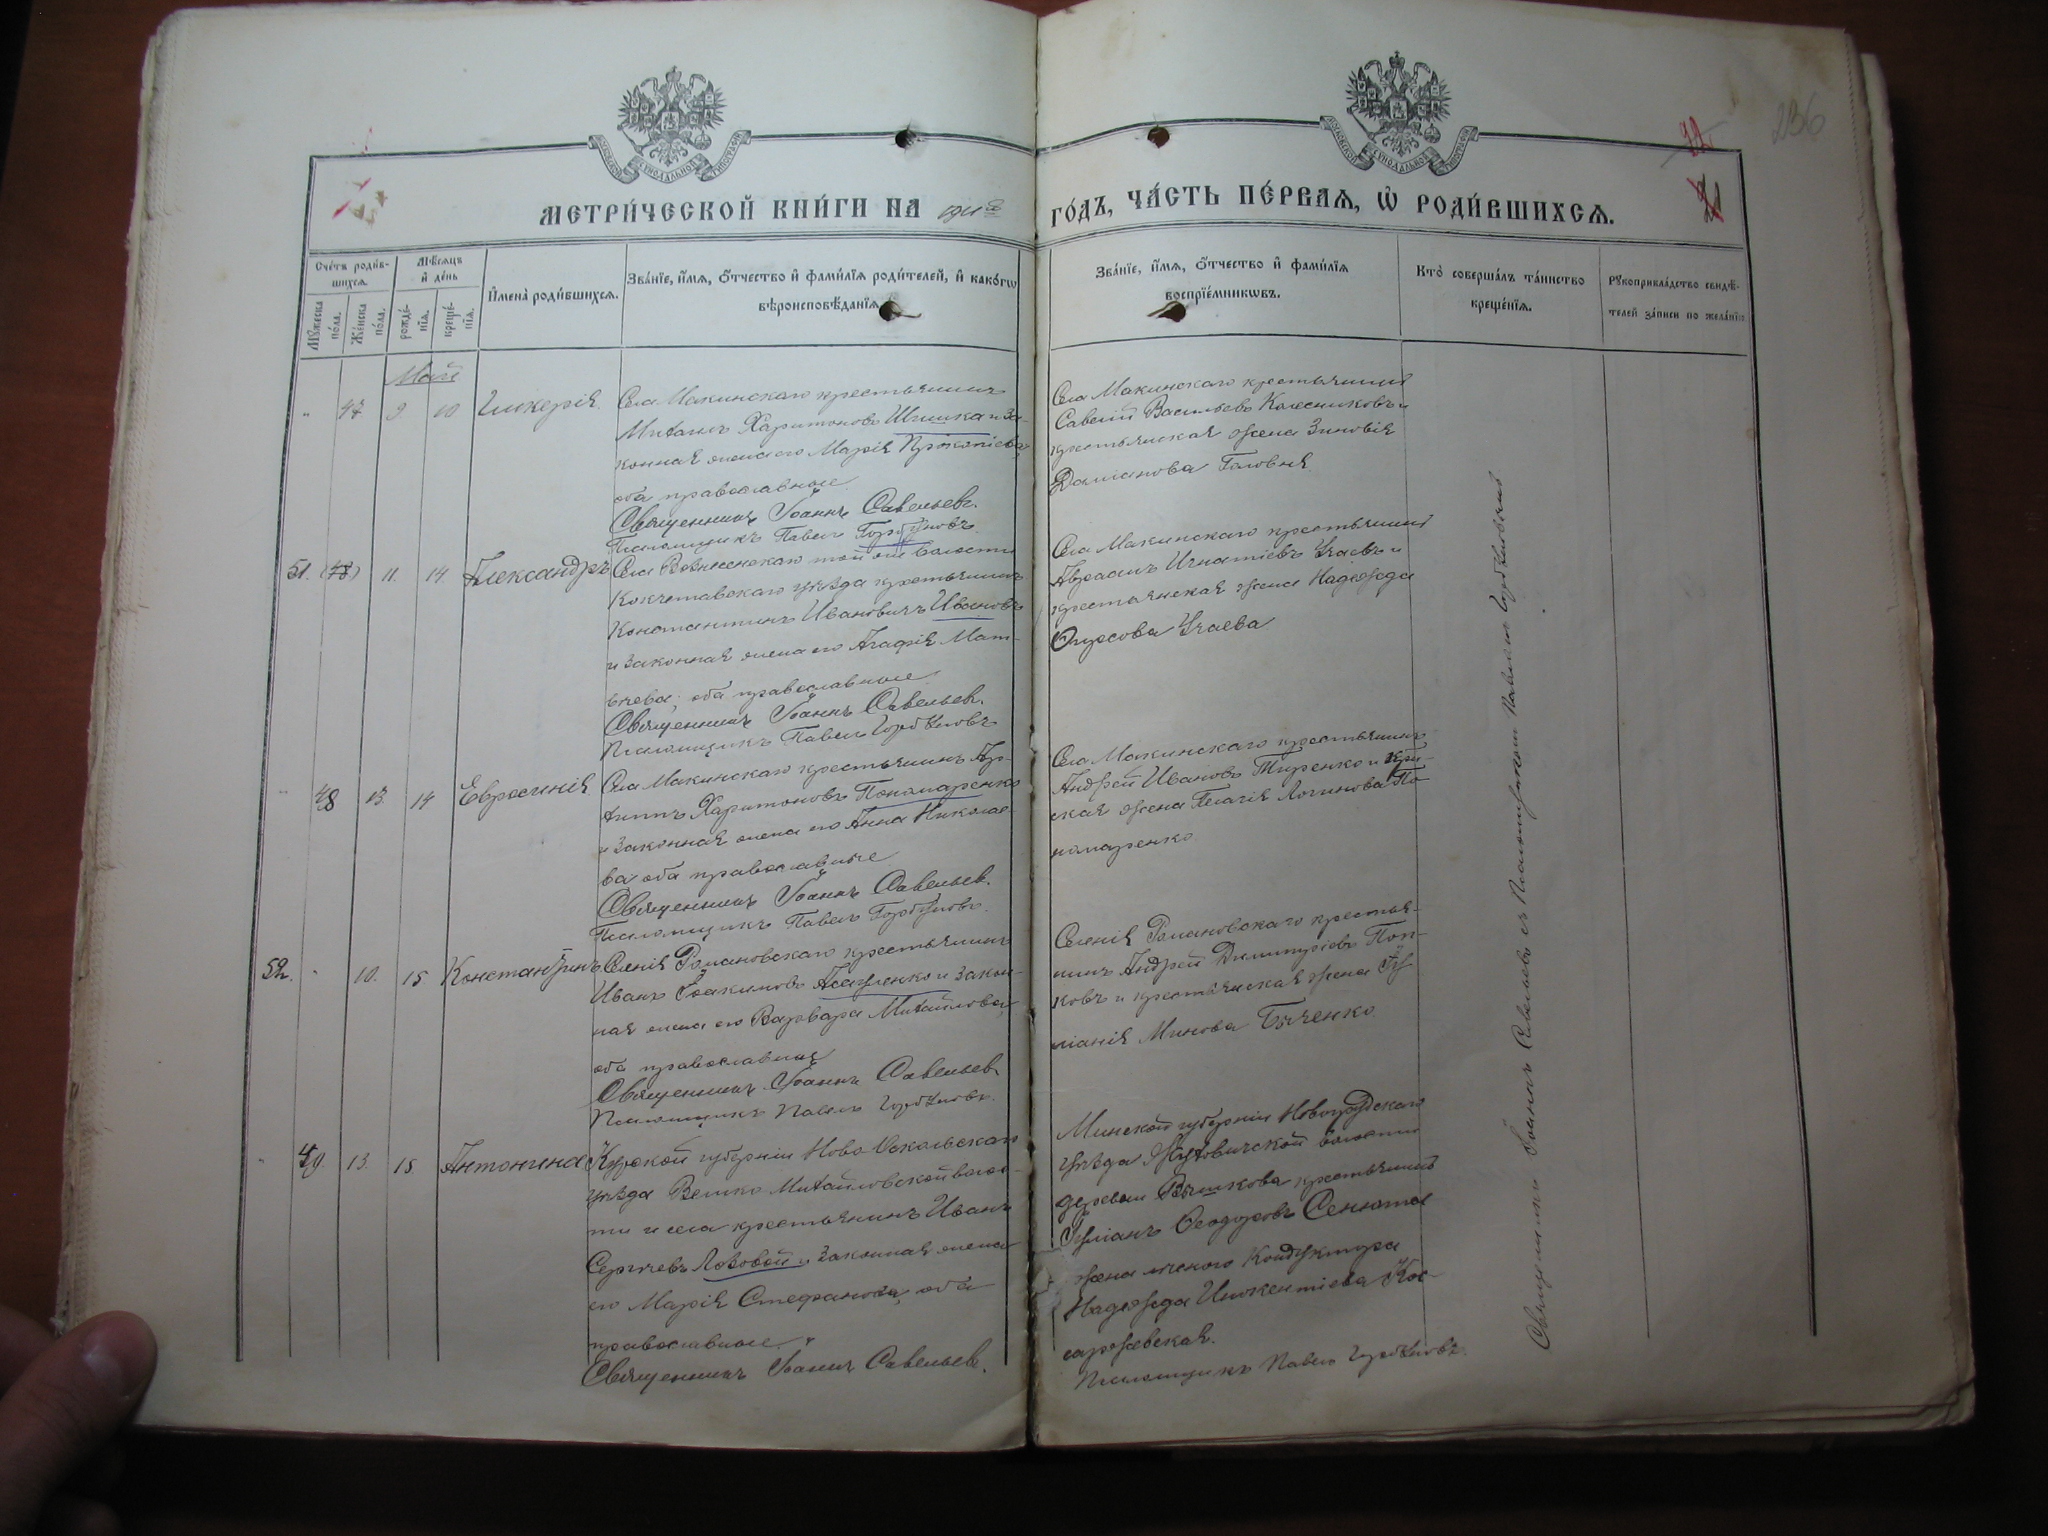 236
МЕТРИ́ЧЕСКОЙ КНИ́ГИ НА 1911й ГО́ДЪ, ЧА́СТЬ ПЕ́РВАѦ, Ѡ҆ РОДИ́ВШИХСѦ.
Сче́тъ роди́вшихсѧ.
Мꙋ́жеска по́ла.
Же́нска по́ла.
Мѣ́сѧцъ и҆ де́нь
рожде́нїѧ.
креще́нїѧ.
И҆мена̀ роди́вшихсѧ.
Зва́нїе, и҆́мѧ, ѻ҆́тчество и҆ фами́лїѧ роди́телей, и҆ како́гѡ
вѣроисповѣ́данїѧ.
Зва́нїе, и҆́мѧ, ѻ҆́тчество и҆ фами́лїѧ
воспрїе́мникѡвъ.
Кто̀ соверша́лъ та́инство
креще́нїѧ.
Рꙋкоприкла́дство свидѣ́-
телей за́писи по жела́нїю.
Май
47 9 10 Гликерія.
Села Макинскаго крестьянинъ
Михаилъ Харитоновъ Шишка и за-
конная жена его Марія Прокопіева,
оба православные
Священникъ Іоаннъ Савельевъ.
Псаломщикъ Павелъ Горбуновъ.
Села Макинскаго крестьянинъ
Савелій Васильевъ Колесниковъ и
крестьянская жена Зиновія
Даміанова Головня.
51. (48) 11. 14 Александръ
Села Вознесенскаго той же волости
Кокчетавскаго уѣзда крестьянинъ
Константинъ Ивановичъ Ивановъ
и законная жена его Агафія Мат-
вѣева, оба православные
Священникъ Іоаннъ Савельевъ.
Псаломщикъ Павелъ Горбуновъ
Села Макинскаго крестьянинъ
Авраамъ Игнатіевъ Учаевъ и
крестьянская жена Надежда
Учаева
48 13. 14 Евфросинія
Села Макинскаго крестьянинъ Ар-
Харитоновъ Пономаренко
и законная жена его Анна Николае-
ва оба православные
Священникъ Іоаннъ Савельевъ.
Псаломщикъ Павелъ Горбуновъ.
Села Макинскаго крестьянинъ
Андрей Ивановъ и
ская жена Пелагія Логинова По-
номаренко.
52. 10. 15 Константинъ
Селенія Романовскаго крестьянинъ
Иванъ Іоакимовъ Асауленко и закон-
ная жена его Варвара Михайлова,
оба православные
Священникъ Іоаннъ Савельевъ
Псаломщикъ Павелъ Горбуновъ.
Селенія Романовскаго крестья-
нинъ Андрей Димитріевъ Поп-
ковъ и крестьянская жена Іу-
ліанія Минова Быченко.
49. 13. 15. Антонина
Курской губерніи Ново-Оскольскаго
уѣзда Велико-Михайловской волос-
ти и села крестьянинъ Иванъ
Сергѣевъ Лозовой и законная жена
его Марія Стефанова, оба
православные.
Священникъ Іоаннъ Савельевъ.
Минской губерніи Новогрудскаго
уѣзда волости
деревни крестьянинъ
Іуліанъ Ѳеодоровъ Сенюта
жена Кондуктора
Надежда Инокентіева Кос-
саржевская.
Псаломщикъ Павелъ Горбуновъ.
Священникъ Іоаннъ Савельевъ съ Псаломщикомъ Павломъ Горбуновымъ